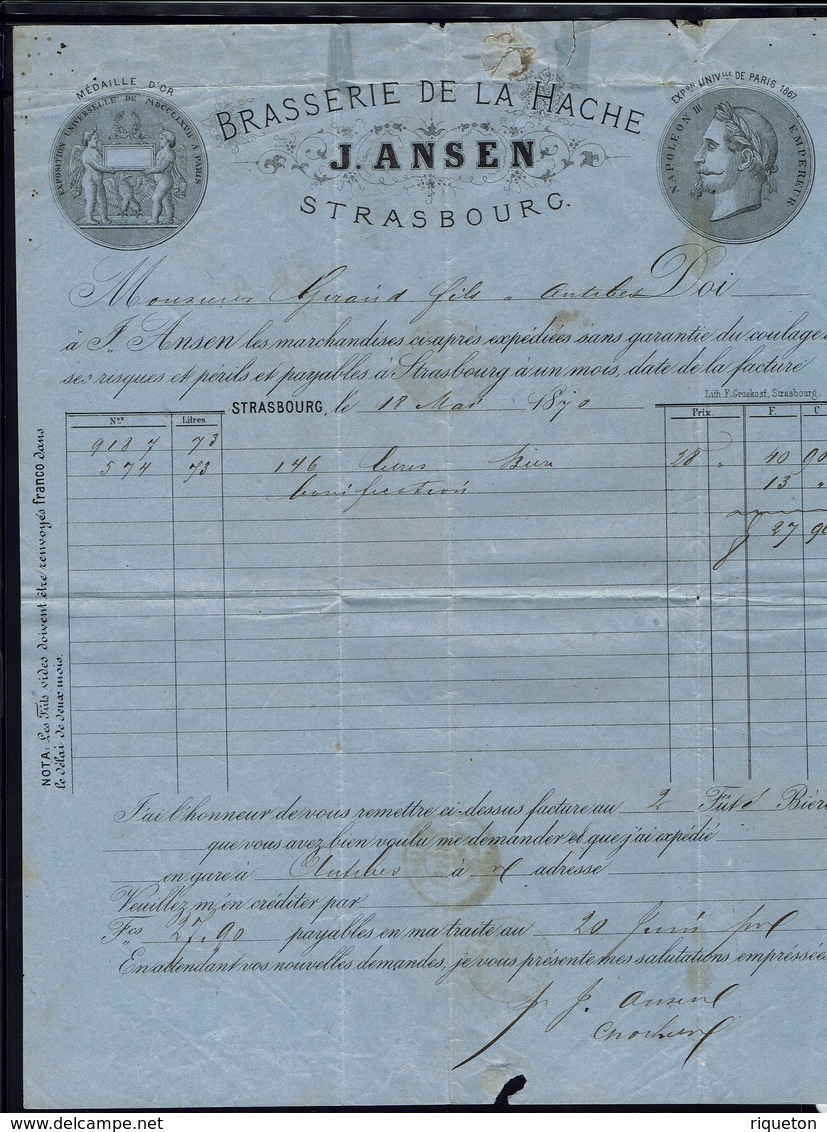 MÉDAILLE D'OR
EXPOSITION UNIVERSELLE DE MDCCCLXVII A PARIS
BRASSERIE DE LA HACHE
J. ANSEN
STRASBOURG.
EXPON UNIVLLE DE PARIS 1867
NAPOLEON III EMPEREUR
Monsieur Giraud fils à Antibes Doi
à J. Ansen les marchandises ci-après expédiées sans garantie du coulage à
ses risques et périls et payables à Strasbourg à un mois, date de la facture
Lith. F. Groskost, Strasbourg
STRASBOURG, le 18 Mai 1870
Nos Litres. Prix F. C
9187 73
574 73 146 litres Bière 28 „ 40 90
bonification 13 „
f 27 90
NOTA: Les Fûts vides doivent être renvoyés franco dans
le délai de deux mois.
J'ai l'honneur de vous remettre ci-dessus facture au 2 Fûts Bière
que vous avez bien voulu me demander et que j'ai expédié
en gare à Antibes à v adresse
Veuillez m'en créditer par
Fcs 27.90 payables en ma traite au 20 Juin
En attendant vos nouvelles demandes, je vous présente mes salutations empréssées
p J. Ansen
riqueton